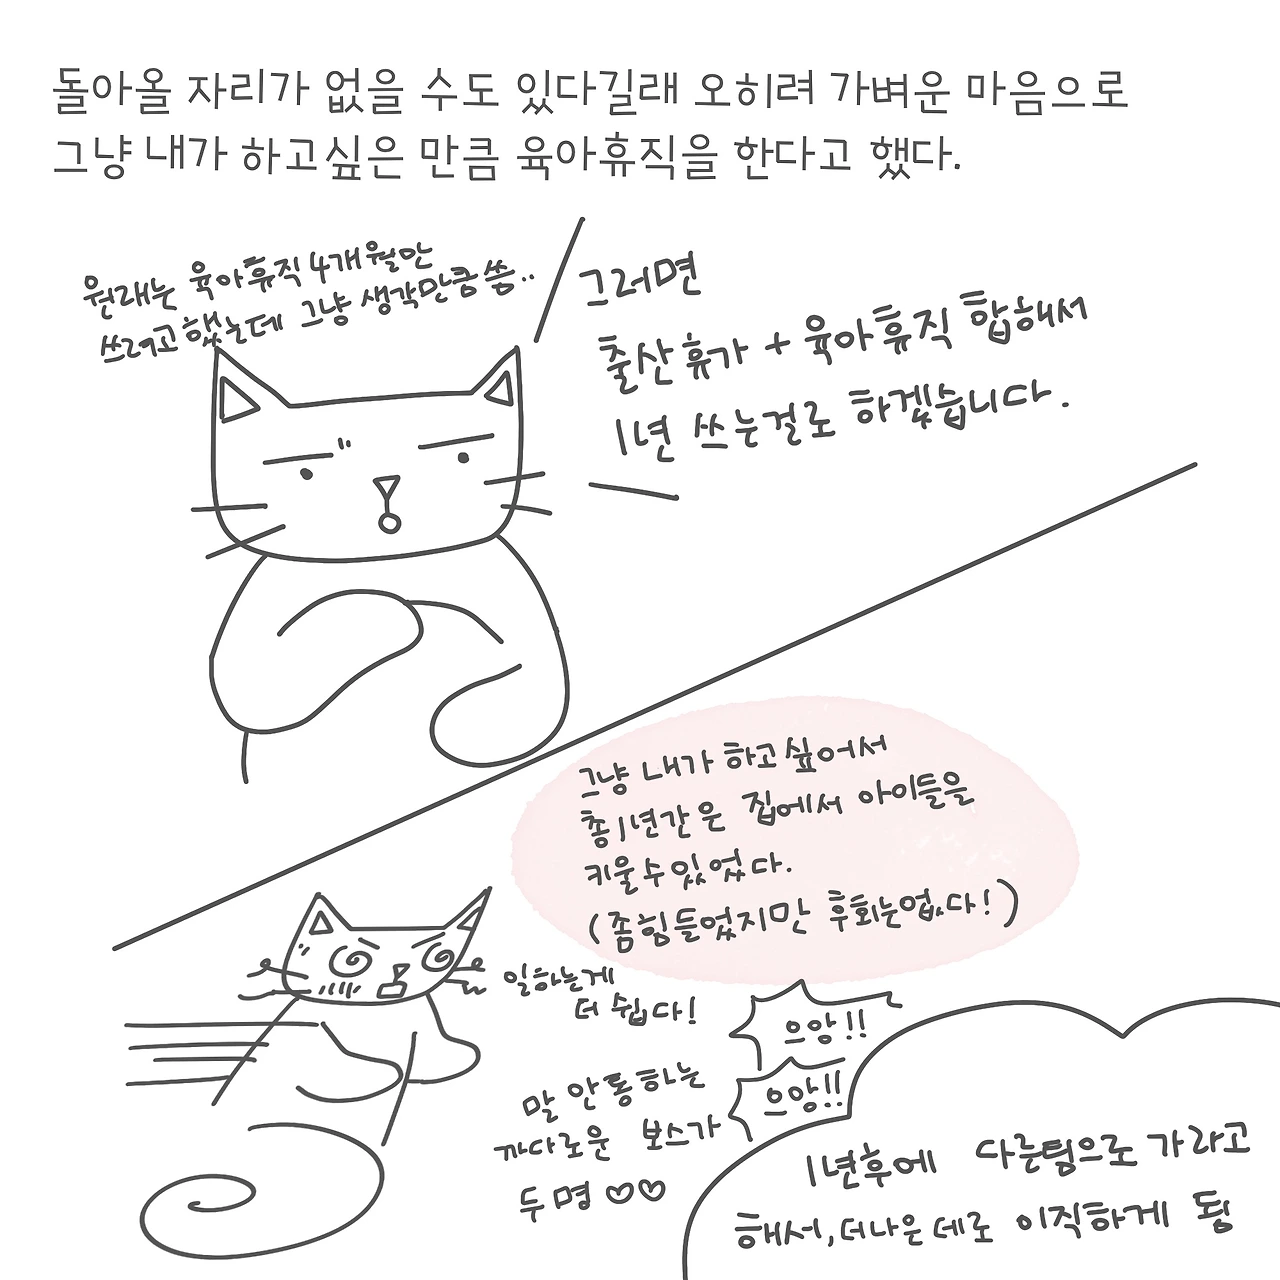 돌아올 자리가 없을 수도 있다길래 오히려 가벼운 마음으로
그냥 내가 하고싶은 만큼 육아휴직을 한다고 했다.
원래는 육아휴직 4개월만
쓰려고 했는데 그냥 생각만큼 씀..
그러면
출산휴가 + 육아휴직 합해서
1년 쓰는걸로 하겠습니다.
그냥 내가 하고싶어서
총 1년간은 집에서 아이들을
키울 수 있었다.
(좀 힘들었지만 후회는 없다!)
일하는게
더 쉽다!
으앙!!
으앙!!
말 안통하는
까다로운 보스가
두 명♡♡
1년후에 다른팀으로 가라고
해서, 더나은데로 이직하게 됨